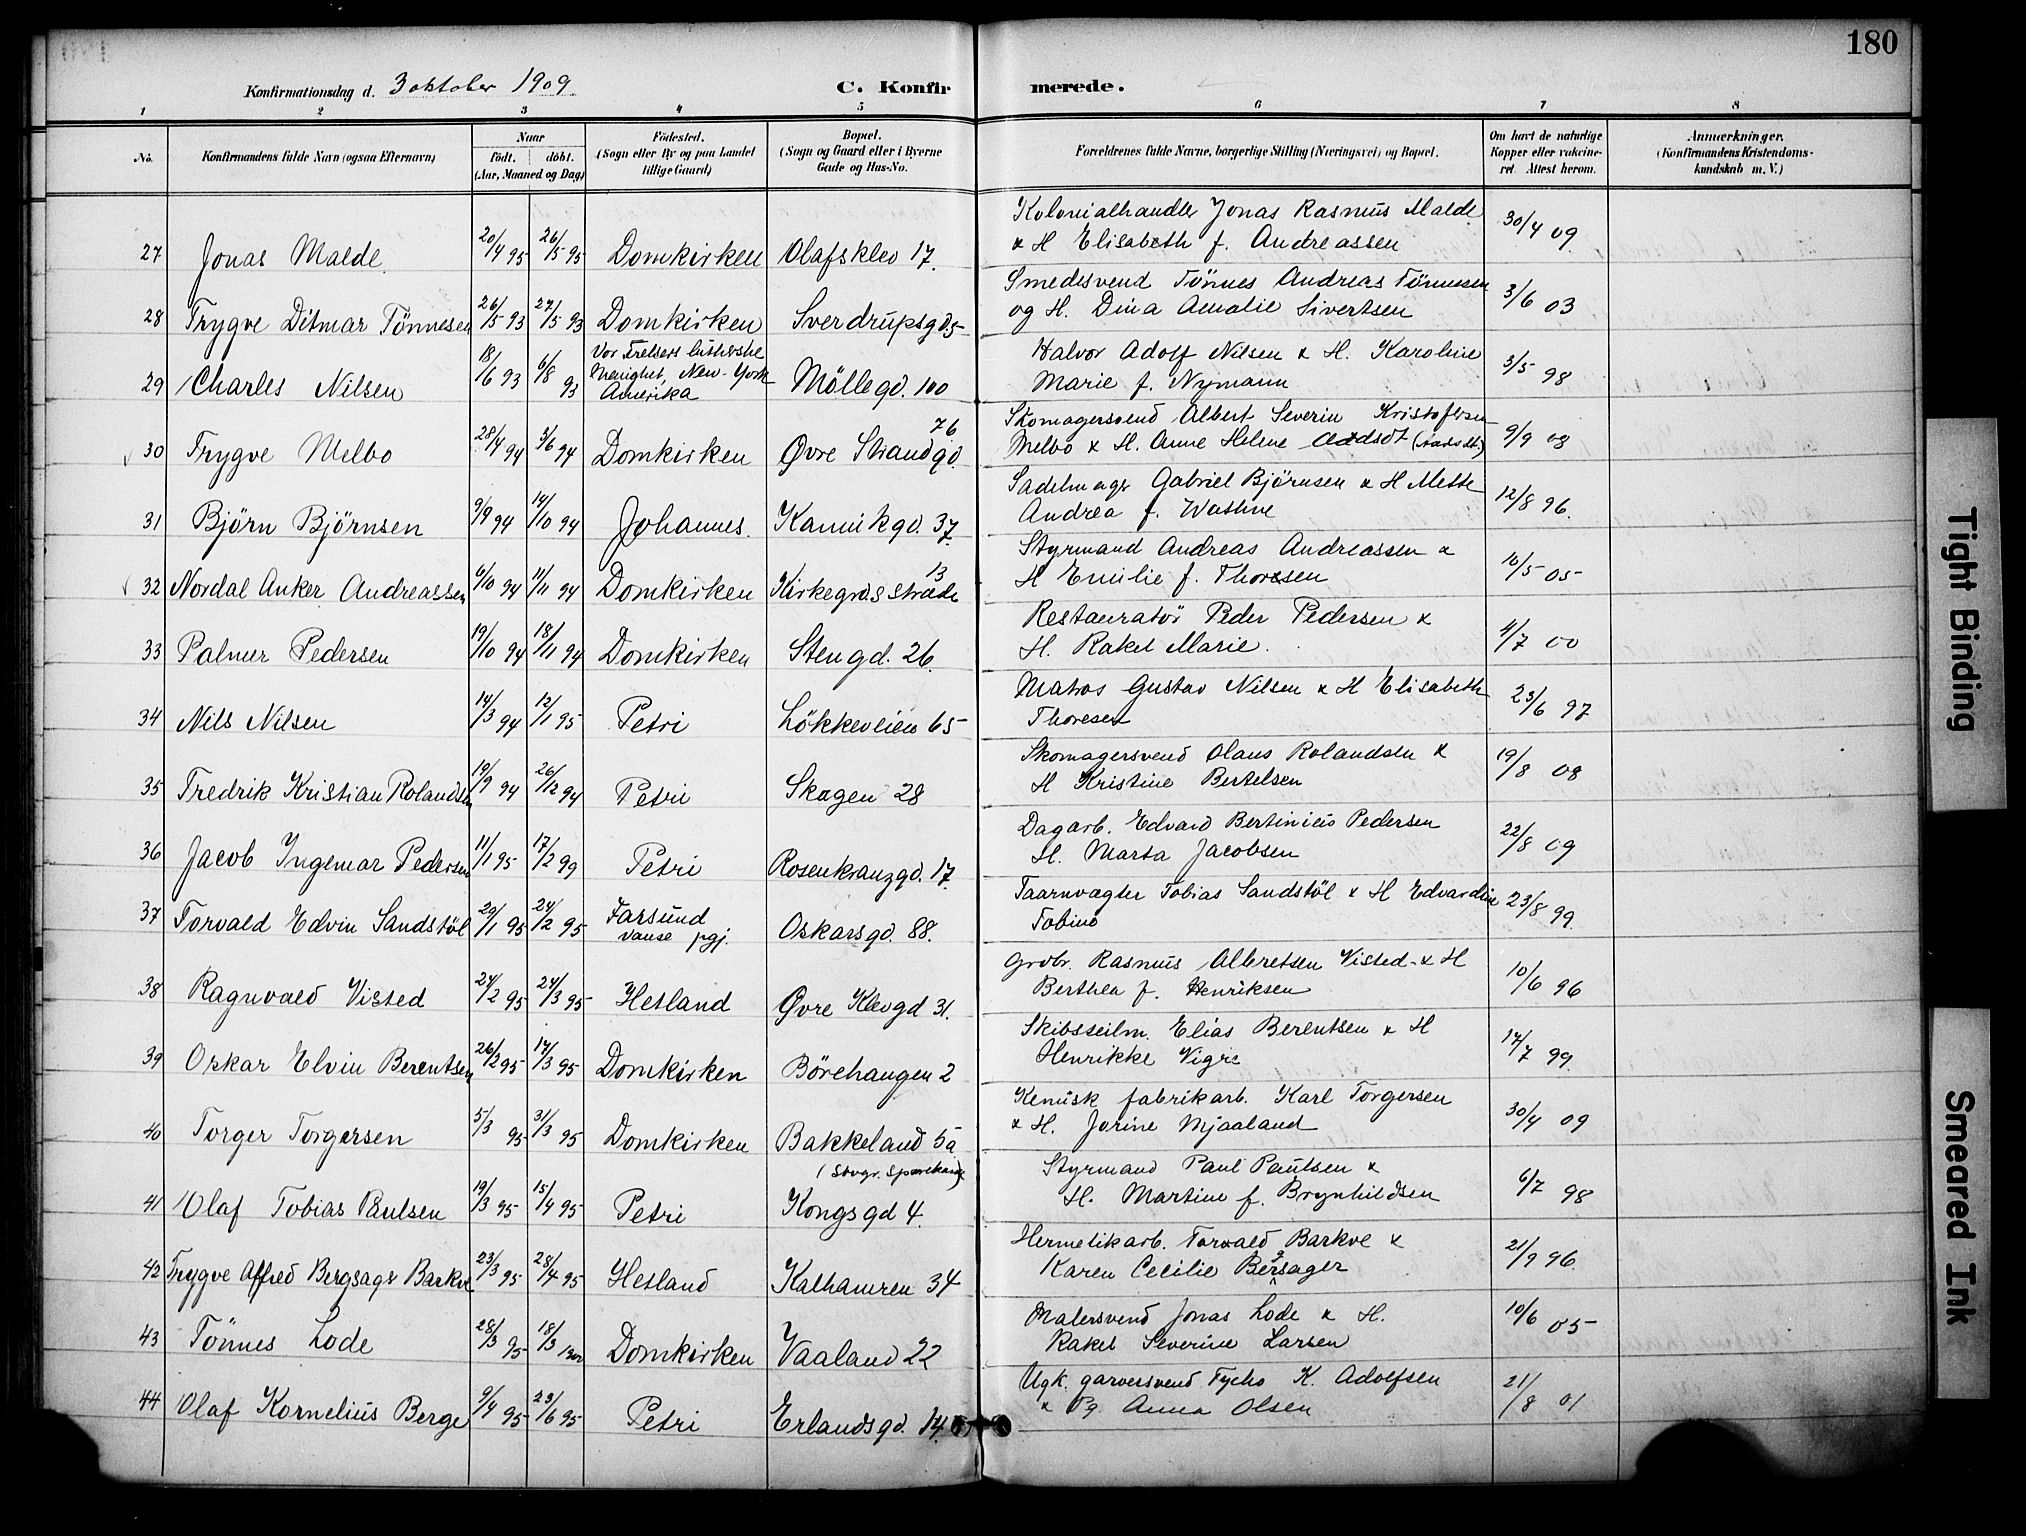 180
Konfirmationsdag d. 3 oktober 1909. C. Konfirmerede.
1 2 3 4 5 6 7 8
No. Konfirmandens fulde Navn (ogsaa Efternavn) Naar födt. döbt. (Aar, Maaned og Dag) Födested. (Sogn eller By og paa Landet tillige Gaard) Bopæl. (Sogn og Gaard eller i Byerne Gade og Hus-No. Forældrenes fulde Navne, borgerlige Stilling (Næringsvei) og Bopæl. Om havt de naturlige Kopper eller vakcineret. Attest herom. Anmærkninger. (Konfirmandens Kristendomskundskab m. V.)
27 Jonas Malde 20/4 95 26/5 95 Domkirken Olafsklev 17. Kolonialhandler Jonas Rasmus Malde
& H Elisabeth f. Andreassen 30/4 09.
28 Trygve Ditmar Tönnesen 26/5 93 27/5 93 Domkirken Sverdrupsgd 5 Smedesvend Tönnes Andreas Tönnesen
og H. Dina Amalie Sivertsen 3/6 03
29 Charles Nilsen 18/6 93 6/8 93 Vor Frelsers lutherske
Menighet, New-York
Amerika Möllegd. 100 Halvor Adolf Nilsen & H. Karoline
Marie f. Nymann 3/5 98
30 Trygve Melbo 28/4 94 3/6 94 Domkirken Øvre Strandgd. 76 Skomagersvend Albert Severin Kristofersen
Melbo & H. Anne Helene 9/9 08
31 Björn Björnsen 9/9 94 14/10 94 Johannes. Kannikgd. 37. Sadelmager Gabriel Björnsen & H Mette
Andrea f. Wathne 12/8 96.
32 Nordal Anker Andreassen 6/10 94 11/11 94 Domkirken Kirkegrds stræde 13 Styrmand Andreas Andreassen &
H Emilie f. Thorsen 10/5 05
33 Palmer Pedersen 19/10 94 18/11 94 Domkirken Stengd. 26. Restauratör Peder Pedersen &
H. Rakel Marie. 4/7 00
34 Nils Nilsen 14/3 94 12/1 95 Petri Lökkeveien 65 Matros Gustav Nilsen & H Elisabeth
Thoresen 23/6 97
35 Fredrik Kristian Rolandsen 19/9 94 26/12 94 Petri Skagen 28 Skomagersvend Olaus Rolandsen &
H Kristine Bertelsen 19/8 08
36 Jacob Ingemar Pedersen 11/1 95 17/2 99 Petri Rosenkranzgd. 17. Dagarb. Edvard Bertinius Pedersen
H. Marta Jacobsen 22/8 09
37 Torvald Edvin Sandstöl 29/1 95 24/2 95 Farsund
Vanse pgj. Oskarsgd. 88. Taarnvægter Tobias Sandstöl & H Edvardine
23/8 99.
38 Ragnvald Visted 24/2 95 24/3 95 Hetland Øvre Klevgd 31. Grdbr. Rasmus Albretsen Visted & H
Berthea f. Henriksen 10/6 96
39 Oskar Elvin Berentsen 26/2 95 17/3 95 Domkirken Börehaugen 2 Skibsseilm. Elias Berentsen & H
Henrikke Vigre 17/7 99.
40 Torger Torgersen 5/3 95 31/3 95 Domkirken Bakkeland 5a Kemisk fabrikarb. Karl Torgersen
& H. Jorine Mjaaland 30/4 09
41 Olaf Tobias Paulsen 19/3 95 15/4 95 Petri (Stvgr. Sparekasse)
Kongsgd 4. Styrmand Paul Paulsen &
H. Martine f. Brynhildsen 6/7 98
42 Trygve Alfred Bergsagr Barkve 23/3 95 28/4 95 Hetland Kalhamren 34 Hermetikarb. Torvald Barkve &
Karen Cecilie Bergsager 21/9 96.
43 Tönnes Lode 28/3 95 18/3 1900 Domkirken Vaaland 22 Malersvend Jonas Lode & H.
Rakel Severine Larsen 10/6 05
44 Olaf Kornelius Berge 9/4 95 23/6 95 Petri Erlandsgd. 14. Ugk. garversvend Tycho K. Adolfsen
& Pg. Anna Olsen 21/8 01
Tight Binding
Smeared Ink